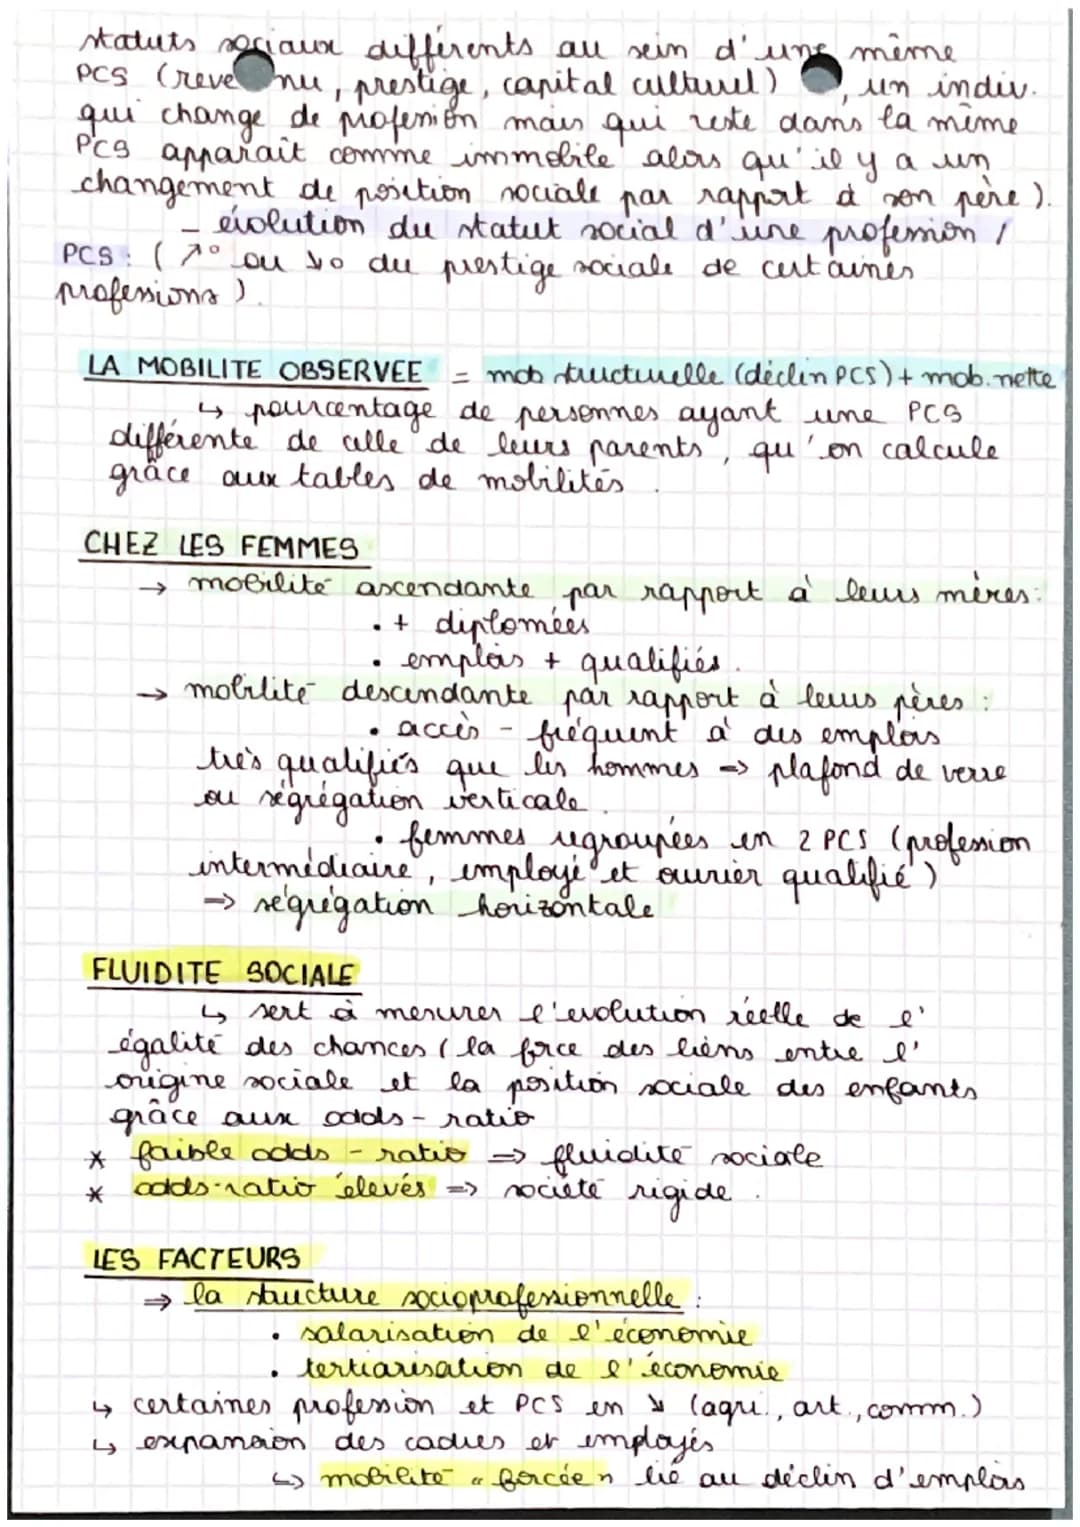 statuts sociaux différents au sein d'une même
PCS (revenu, prestige, capital culturel) , un indiv.
qui change de profession mais qui reste dans la même
PCS apparait comme immobile alors qu'il y a un
changement de position sociale par rapport à son père).
- évolution du statut social d'une profession /
PCS : ( ↗° ou ↘° du prestige sociale de certaines
professions ).
LA MOBILITE OBSERVEE = mob structurelle (déclin PCS) + mob. nette
↳ pourcentage de personnes ayant une PCS
différente de celle de leurs parents, qu'on calcule
grâce aux tables de mobilités .
CHEZ LES FEMMES
→ mobilité ascendante par rapport à leurs mères :
• + diplomées
• emplois + qualifiés .
→ mobilité descendante par rapport à leurs pères :
• accès - fréquent à des emplois
très qualifiés que les hommes => plafond de verre
ou ségrégation verticale .
• femmes regroupées en 2 PCS (profession
intermédiaire, employé et ouvrier qualifié )
=> ségrégation horizontale
FLUIDITE SOCIALE
↳ sert à mesurer l'evolution réelle de l'
égalité des chances ( la force des liens entre l'
origine sociale et la position sociale des enfants
grâce aux odds - ratio
* faible odds - ratio => fluidité sociale
* odds-ratio élevés => société rigide .
LES FACTEURS
=> la structure socioprofessionnelle :
• salarisation de l'économie
• tertiarisation de l'économie
↳ certaines profession et PCS en ↘ (agri., art., comm.)
↳ expansion des cadres et employés
↳ mobilité « forcée » lié au déclin d'emplois